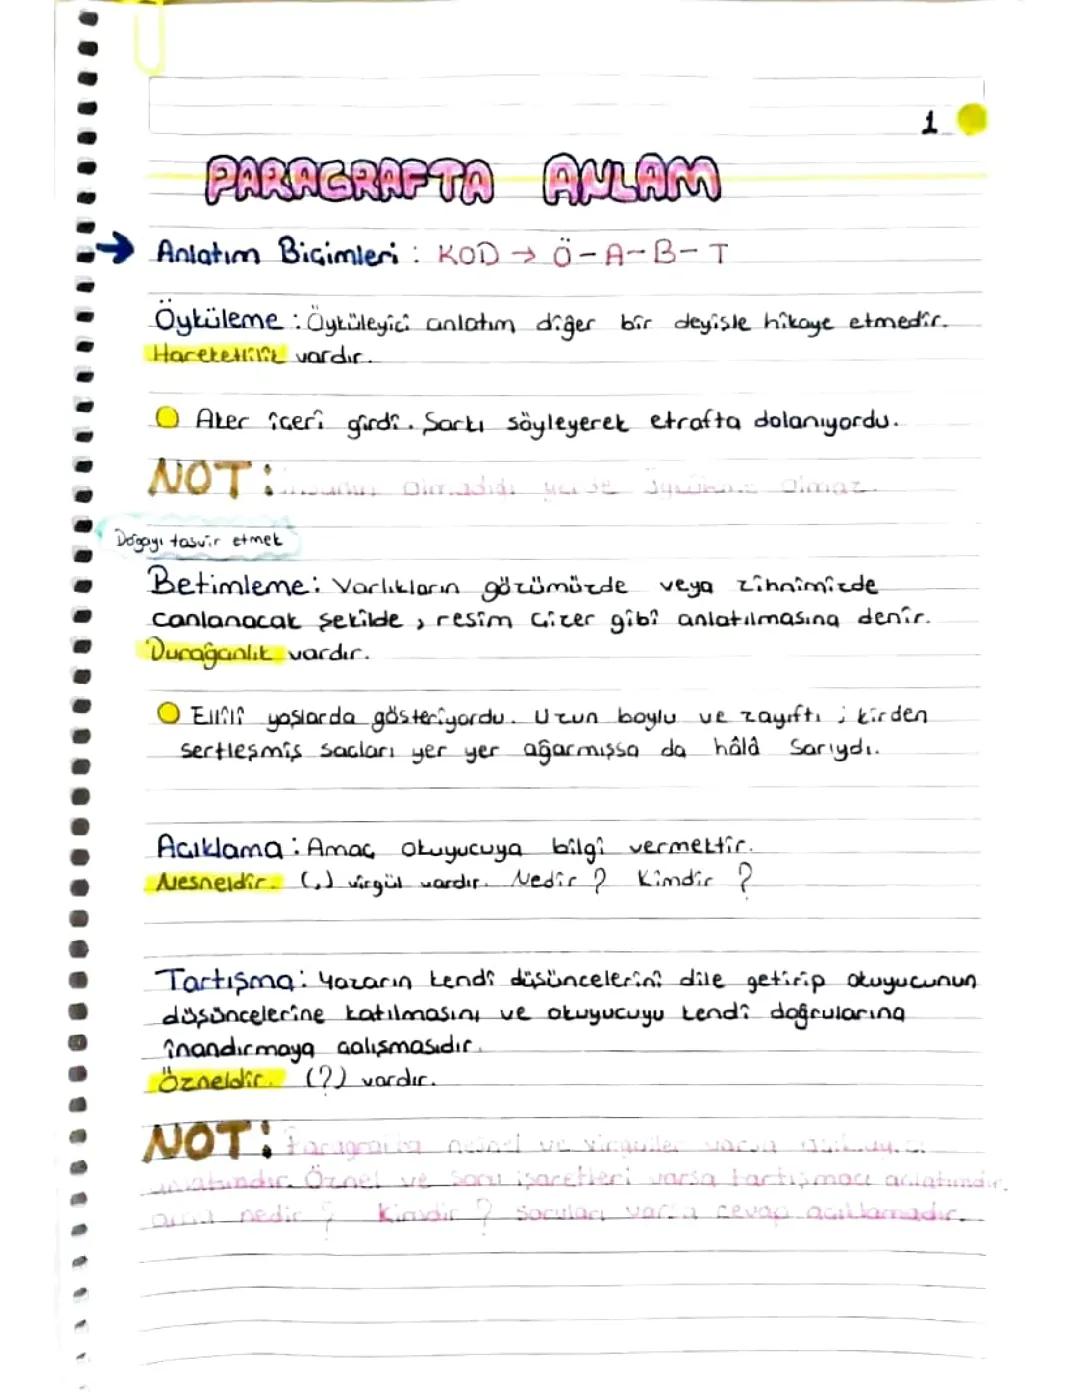 1
PARAGRAFTA ANLAM
→ Anlatım Biçimleri : KOD → Ö-A-B-T
Öyküleme : Öyküleyici anlatım diğer bir deyişle hikaye etmedir.
Hareketlilik vardır.
Aker içeri girdi. Şarkı söyleyerek etrafta dolanıyordu.
NOT: olmadığı yerde olmaz.
Doğayı tasvir etmek
Betimleme: Varlıkların gözümüzde veya zihnimizde
canlanacak şekilde, resim çizer gibi anlatılmasına denir.
Durağanlık vardır.
Ellili yaşlarda gösteriyordu. Uzun boylu ve zayıftı ; kirden
sertleşmiş saçları yer yer ağarmışsa da hâlâ sarıydı.
Açıklama : Amaç okuyucuya bilgi vermektir.
Nesneldir. (,) virgül vardır. Nedir ? Kimdir ?
Tartışma : Yazarın kendi düşüncelerini dile getirip okuyucunun
düşüncelerine katılmasını ve okuyucuyu kendi doğrularına
inandırmaya çalışmasıdır.
Özneldir. (?) vardır.
NOT: Paragrafta nesnel ve virgüller varsa
Öznel ve soru işaretleri varsa tartışmacı anlatımdır.
Ama nedir ? Kimdir ? soruları varsa cevap açıklamadır.